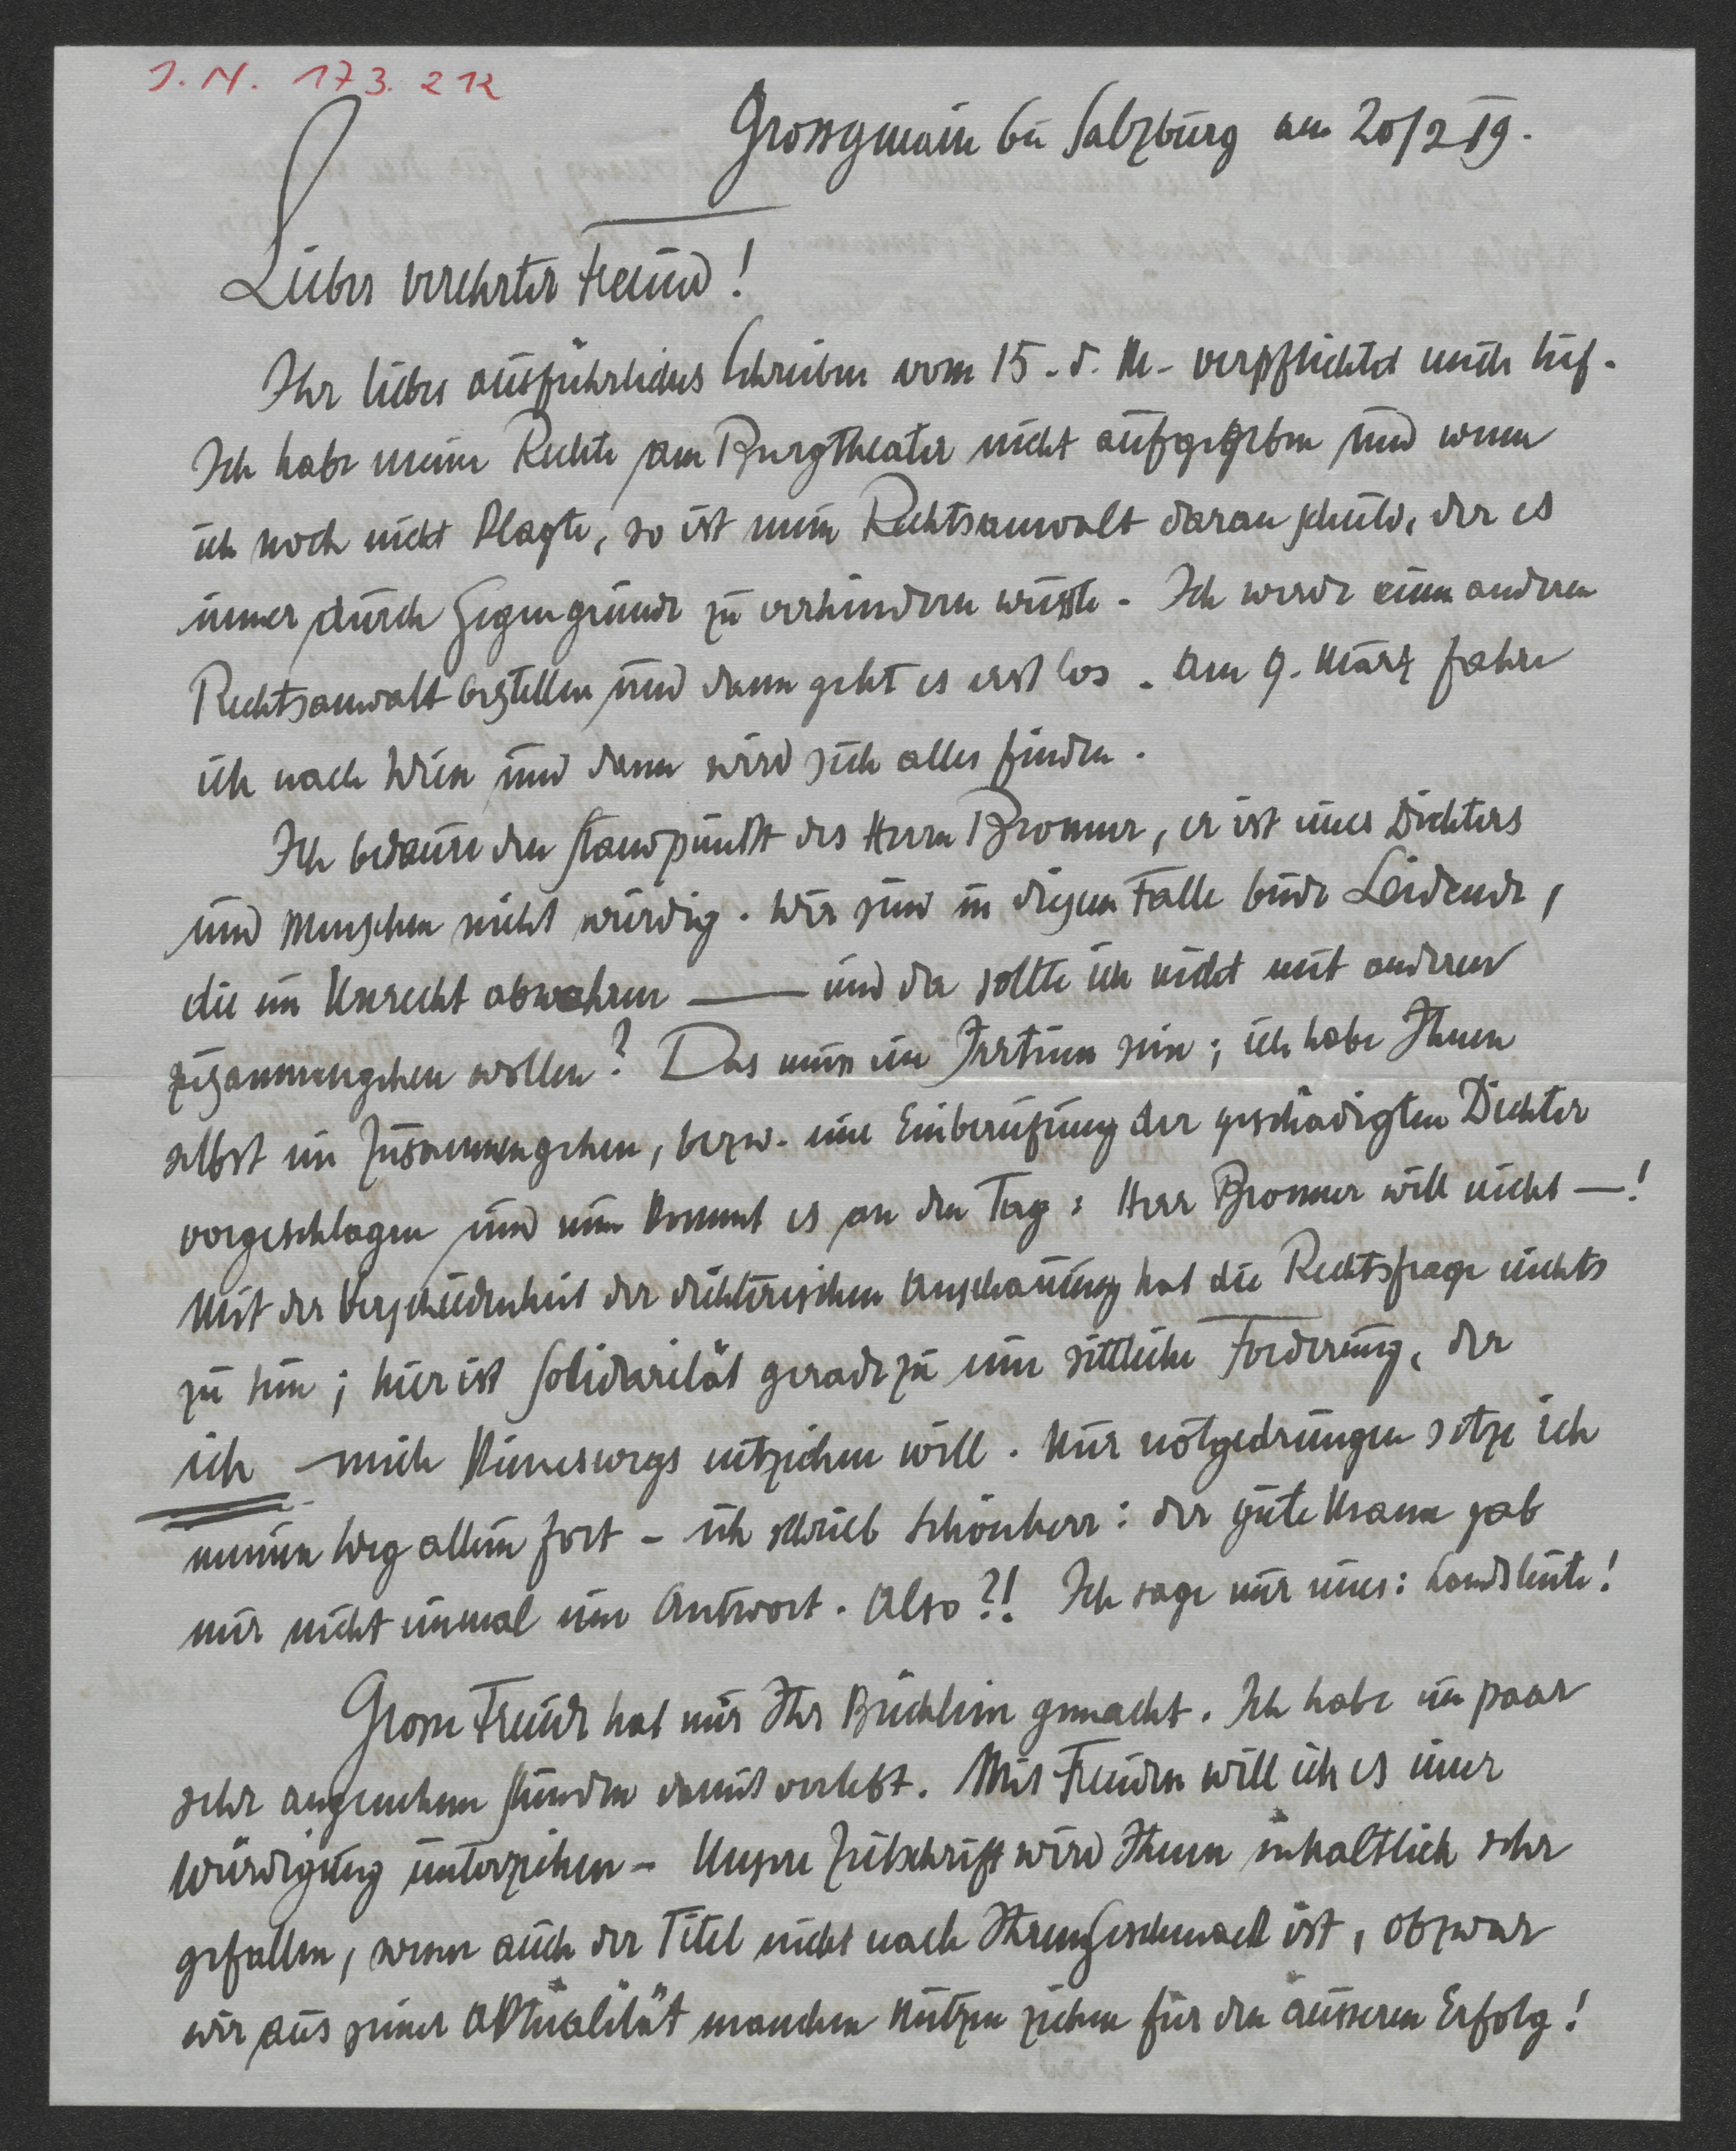 J. N. 173.212
Grossgmain bei Salzburg am 20/2 19.
Lieber verehrter Freund!
Ihr liebes ausführliches Schreiben vom 15. d. M. verpflichtet mich tief.
Ich habe meine Rechte am Burgtheater nicht aufgegeben und wenn
ich noch nicht klagte, so ist mein Rechtsanwalt daran schuld, der es
immer durch Gegengründe zu verhindern wusste. Ich werde einen anderen
Rechtsanwalt bestellen und dann geht es erst los. Am 9. März fahre
ich nach Wien und dann wird sich alles finden.
Ich bedaure den Standpunkt des Herrn Bronner, er ist eines Dichters
und Menschen nicht würdig. Wir sind in diesem Falle beide Leidende,
die ein Unrecht abwehren — und da sollte ich nicht mit anderen
zusammengehen wollen? Das muss ein Irrtum sein; ich habe Ihnen
selbst ein Zusammengehen, bezw. eine Einberufung der geschädigten Dichter
vorgeschlagen und nun kommt es an den Tag: Herr Bronner will nicht —!
Mit der Verschiedenheit der dichterischen Anschauung hat die Rechtsfrage nichts
zu tun; hier ist Solidarität geradezu eine sittliche Forderung, der
ich mich keineswegs entziehen will. Nur notgedrungen setze ich
meinen Weg allein fort – ich schrieb Schönherr: der gute Mann gab
mir nicht einmal eine Antwort. Also?! Ich sage nur eines: Landsleute!
Grosse Freude hat mir Ihr Büchlein gemacht. Ich habe ein paar
sehr angenehme Stunden damit verlebt. Mit Freuden will ich es einer
Würdigung unterziehen – Unsere Zeitschrift wird Ihnen inhaltlich sehr
gefallen, wenn auch der Titel nicht nach Ihrem Geschmack ist, obzwar
wir aus seiner Aktualität manchen Nutzen ziehen für den äusseren Erfolg!